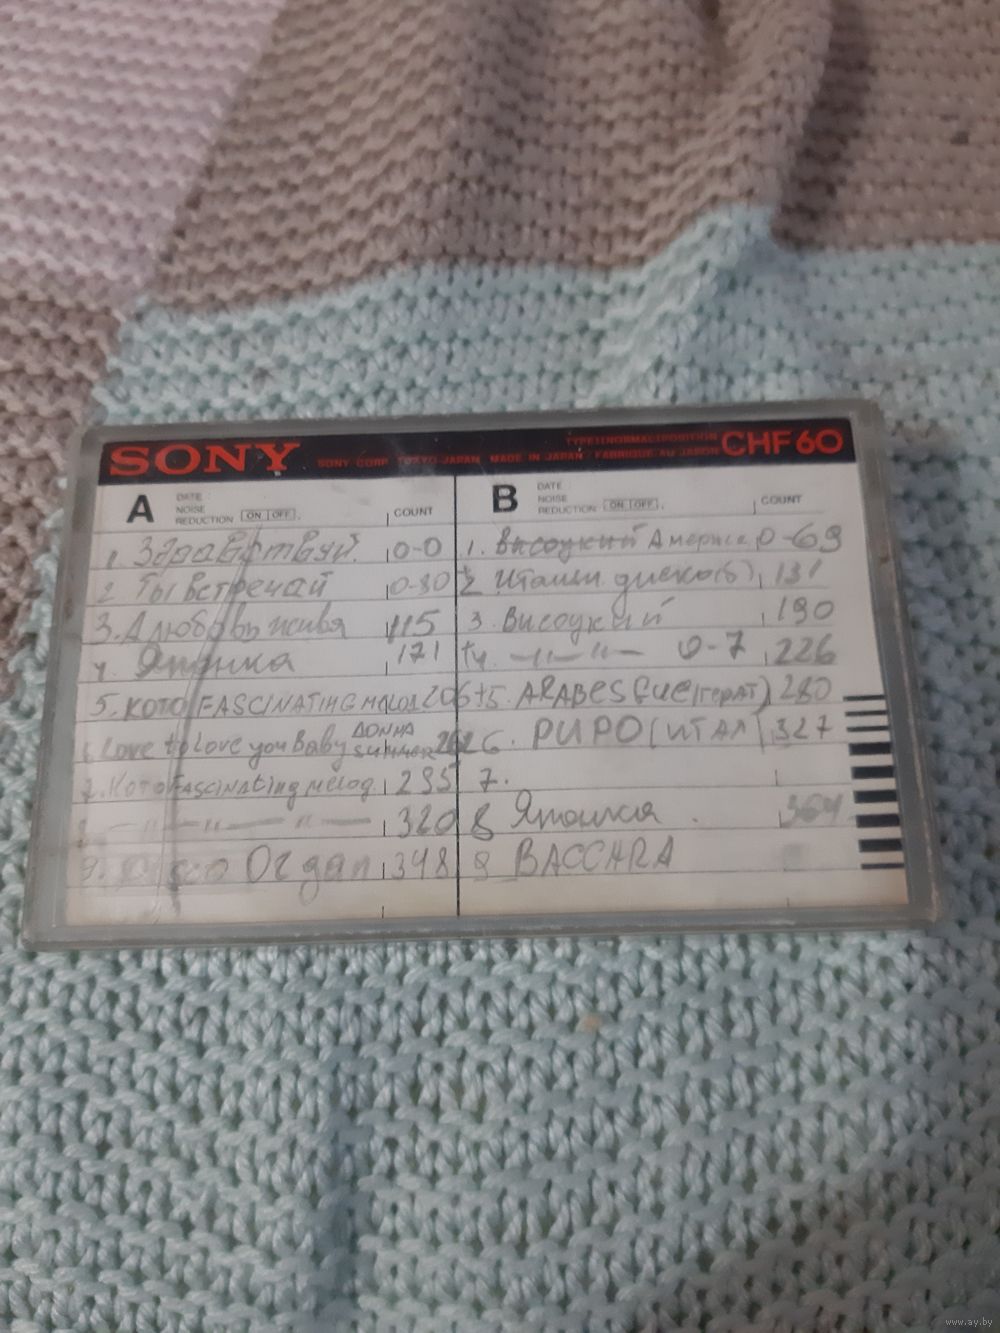 SONY
TYPE I (NORMAL) POSITION CHF 60
SONY CORP. TOKYO JAPAN MADE IN JAPAN / FABRIQUÉ AU JAPON
A DATE NOISE REDUCTION ON OFF COUNT
1. Здравствуй. 0-0
2 Ты встречай 0-30
3. А любовь жива 115
4. Японка 171
5. КОТО FASCINATING MELOD 206
6. Love to Love you Baby ДОННА SUMMER 262
7. КОТО FASCINAting MELOD. 295
— " — " — 320
9. Орган 348
B DATE NOISE REDUCTION ON OFF COUNT
1. Высоцкий Америка 0-69
2 Италия. диско(5) 131
3. Висоцкий 190
4. — " — " — 0-7 226
5. ARABESGUE (ГЕРАТ) 280
6. PUPO (ИТАЛ) 327
7.
8 Японкя. 364
9 BACCARA
www.ay.by